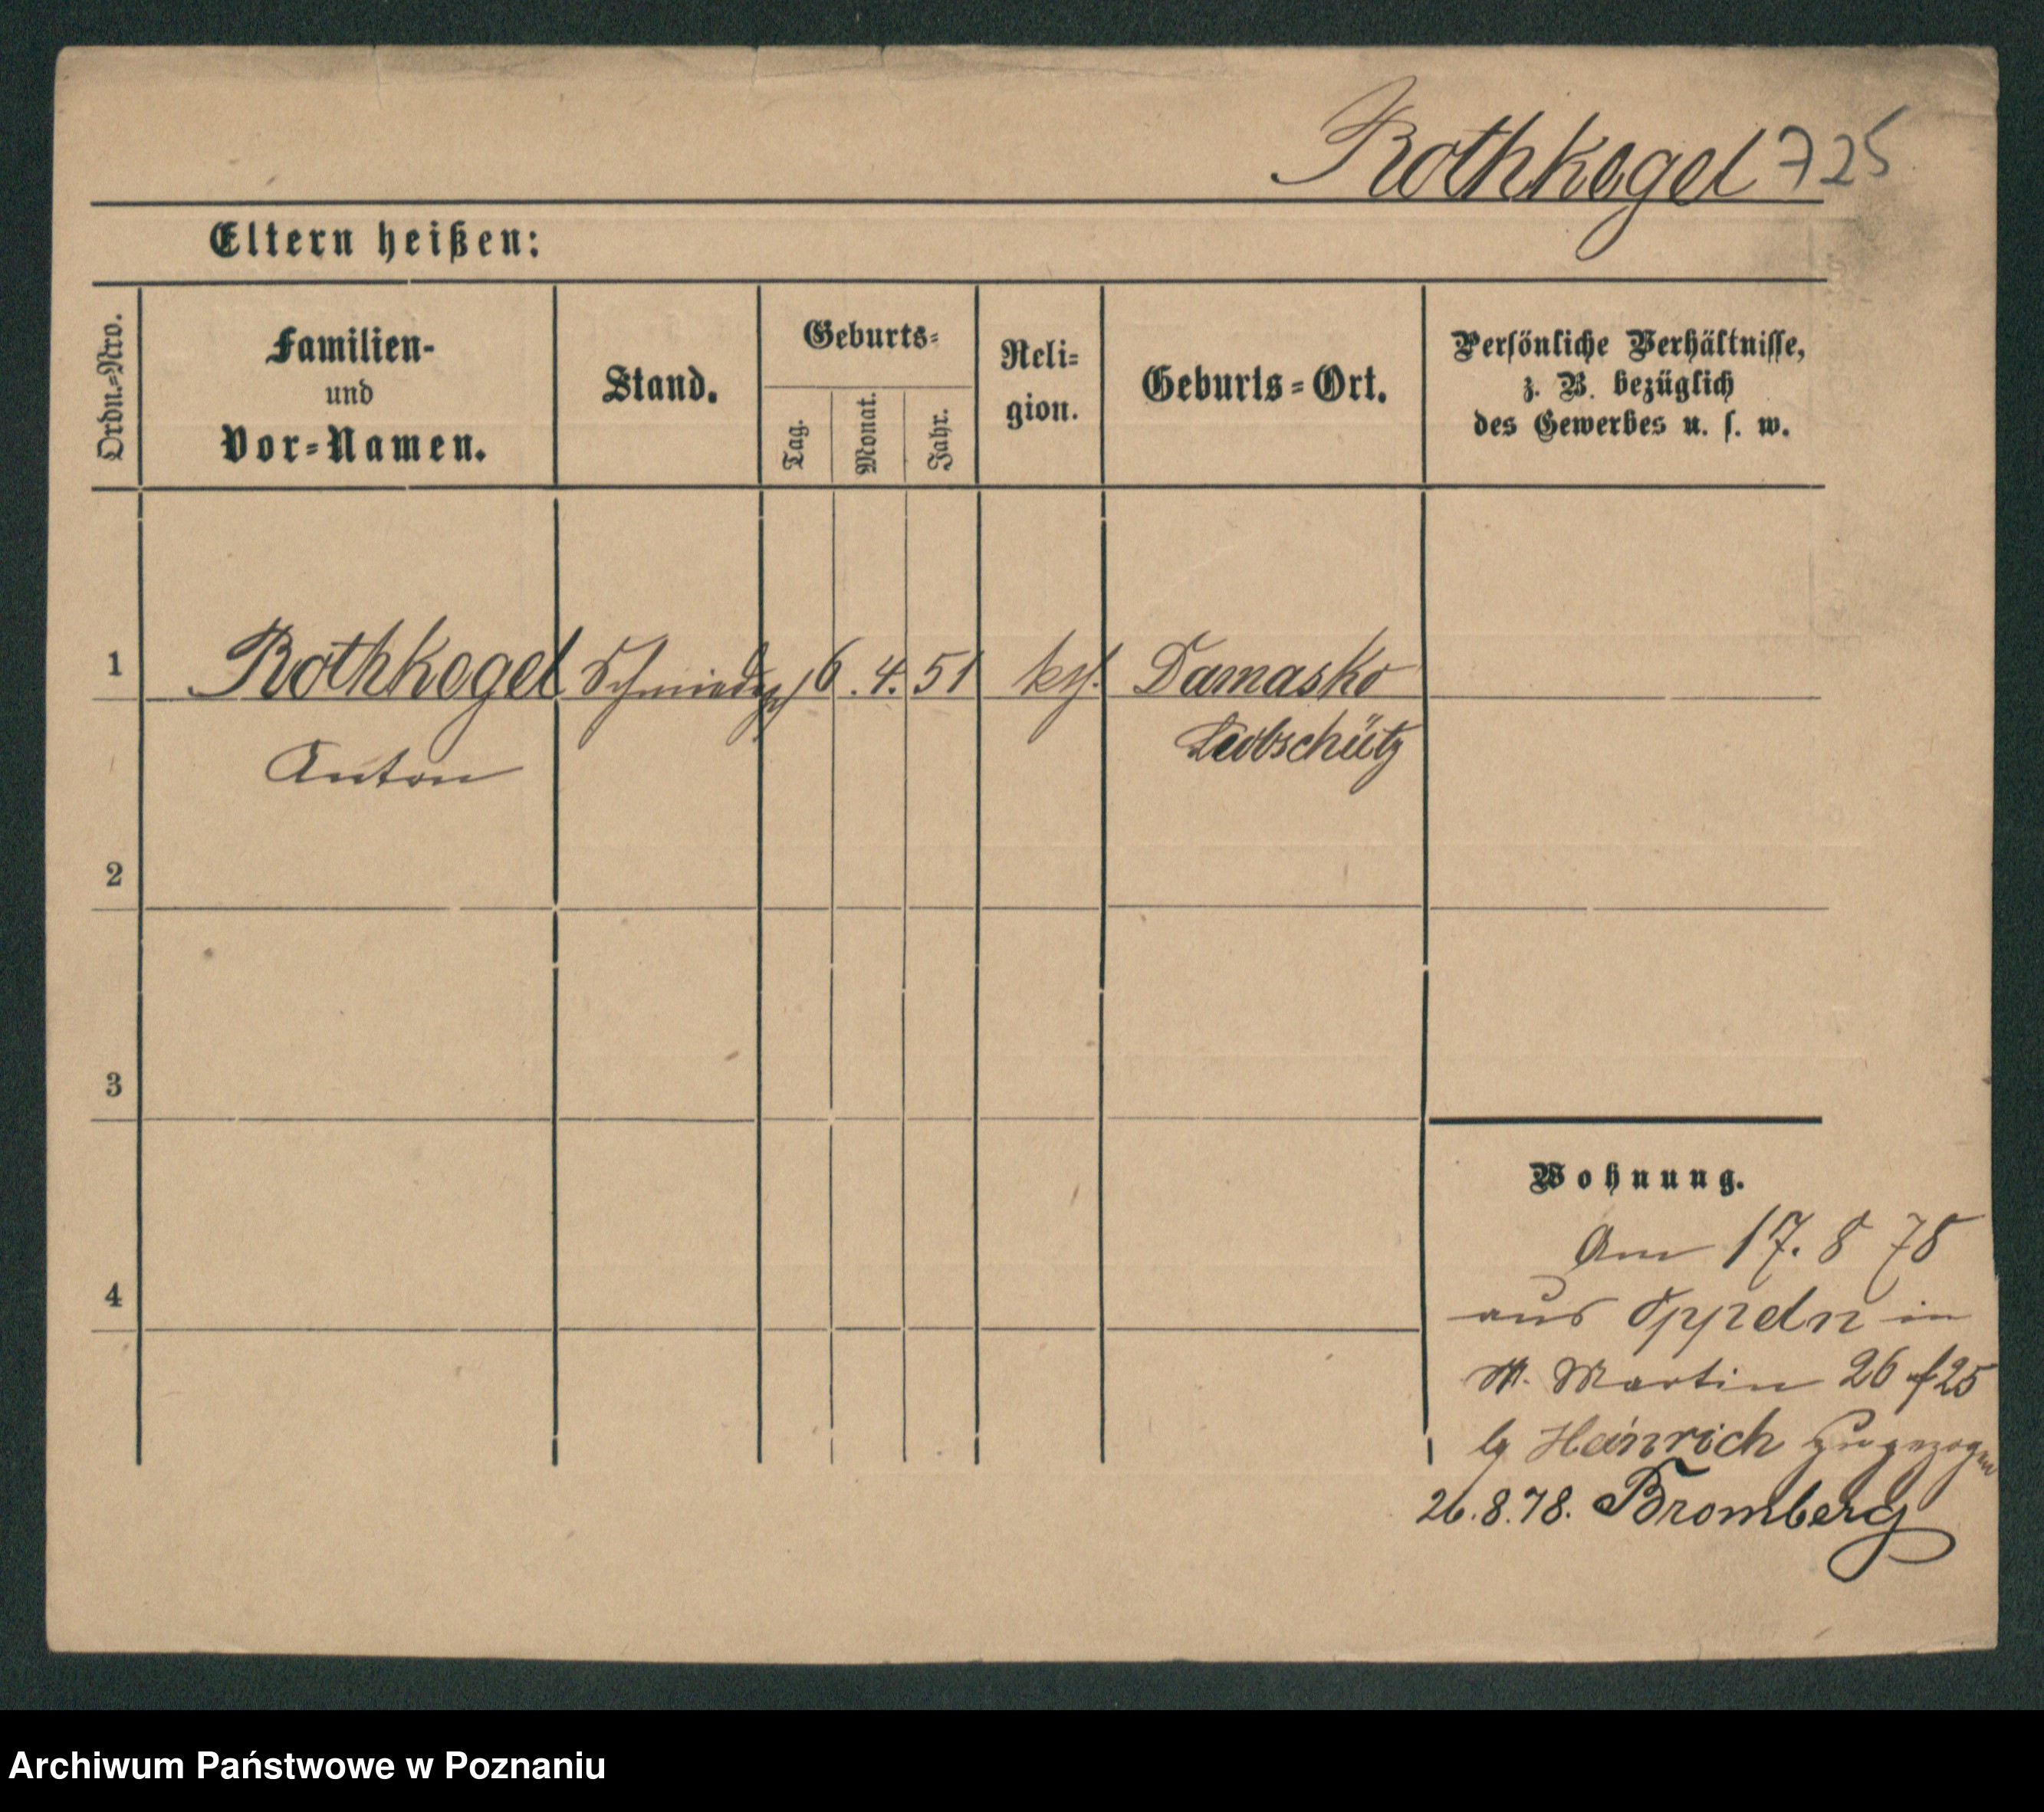 Rothkegel 725
Eltern heißen:
Ordn.=Nro.
Familien-
und
Vor=Namen.
Stand.
Geburts=
Tag.
Monat.
Jahr.
Reli=
gion.
Geburts=Ort.
Persönliche Verhältnisse,
z. B. bezüglich
des Gewerbes u. s. w.
1 Rothkegel Schmiedeg 6. 4. 51 kth. Damasko
Anton Leobschütz
2
3
4
Wohnung.
Am 17. 8 78
aus Oppeln in
St. Martin 26 25
Heinrich zugezogen
26.8.78. Bromberg
Archiwum Państwowe w Poznaniu